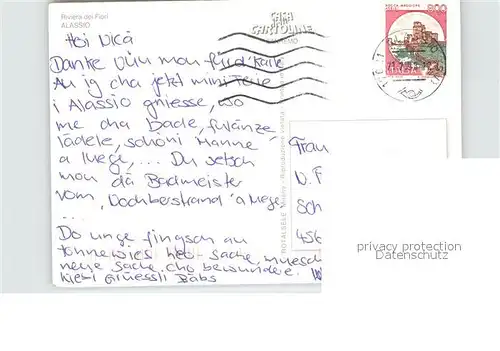 Riviera dei Fiori
ALASSIO
CASA
DELLE
CARTOLINE
ROCCA MAGGIORE
800
Hoi Vicä
Danke vüu mou für d'Karte
Au ig cha jetzt mini Ferie
i Alassio gniesse, wo
me cha Bade, fulänze
lädele, schöni Manne
a luege, ... Du setsch
mou dä Badmeister
vom
...
Do unge fingsch au
het Sache, muesch
neue Sache cho bewundere.
Liebi Grüessli Babs
Riproduzione vietata
Frau
N. F
Sch
456
privacy protection
Datenschutz